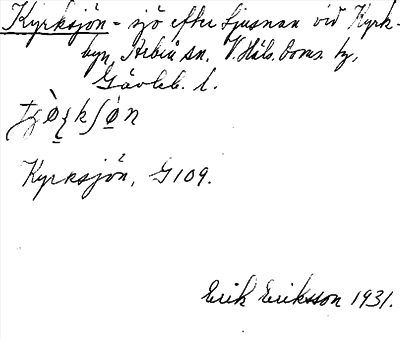 Kyrksjön - sjö efter Ljusnan vid Kyrk-
byn, Arbrå sn. V. Häls. Doms. tg,
Gävleb. l.
Kyrksjön, G109.
Erik Eriksson 1931.